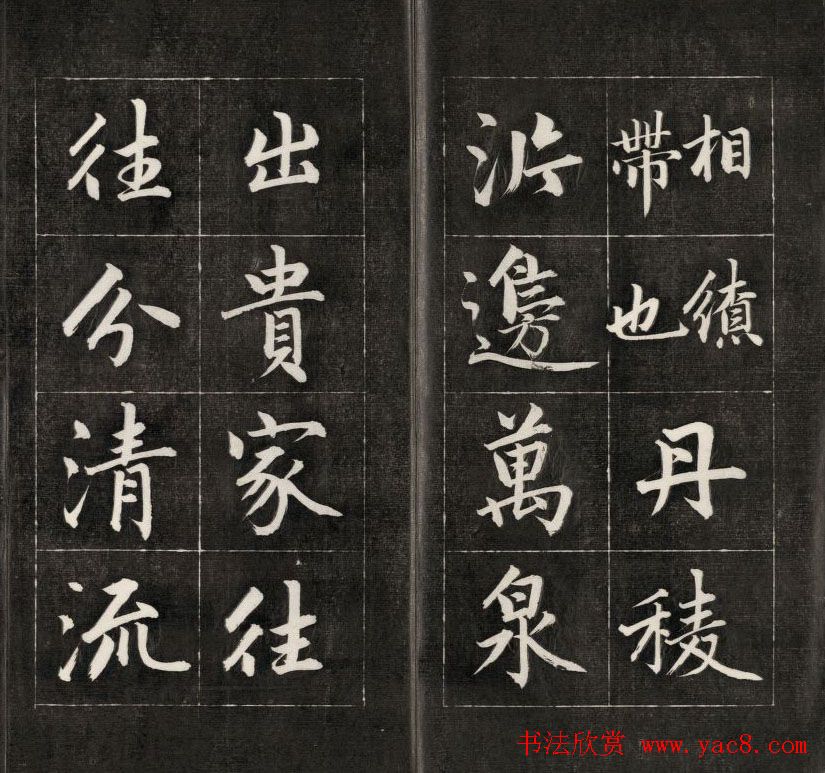 相續
帶也
丹稜
沜邊萬泉
出貴家往
往分清流
书法欣赏 www.yac8.com